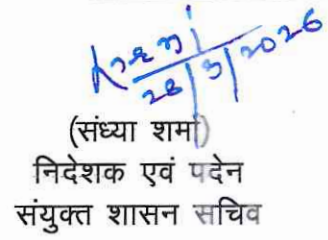 28/5/2026
(संध्या शर्मा)
निदेशक एवं पदेन
संयुक्त शासन सचिव